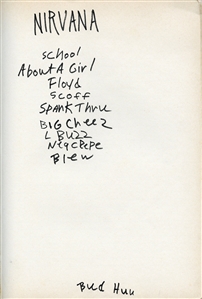 NIRVANA
School
About A Girl
Floyd
Scoff
Spank Thru
BIG Cheez
L Buzz
Blew
Bud Huu